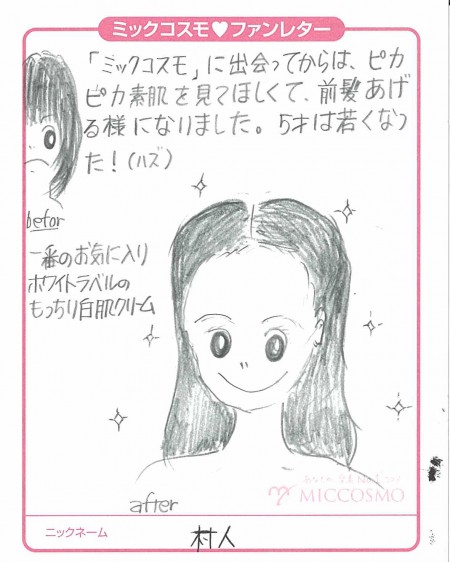 ミックコスモ♥ファンレター
「ミックコスモ」に出会ってからは、ピカ
ピカ素肌を見てほしくて、前髪あげ
る様になりました。5才は若くなっ
た！(ハズ)
befor
一番のお気に入り
ホワイトラベルの
もっちり白肌クリーム
after
MICCOSMO
ニックネーム
村人